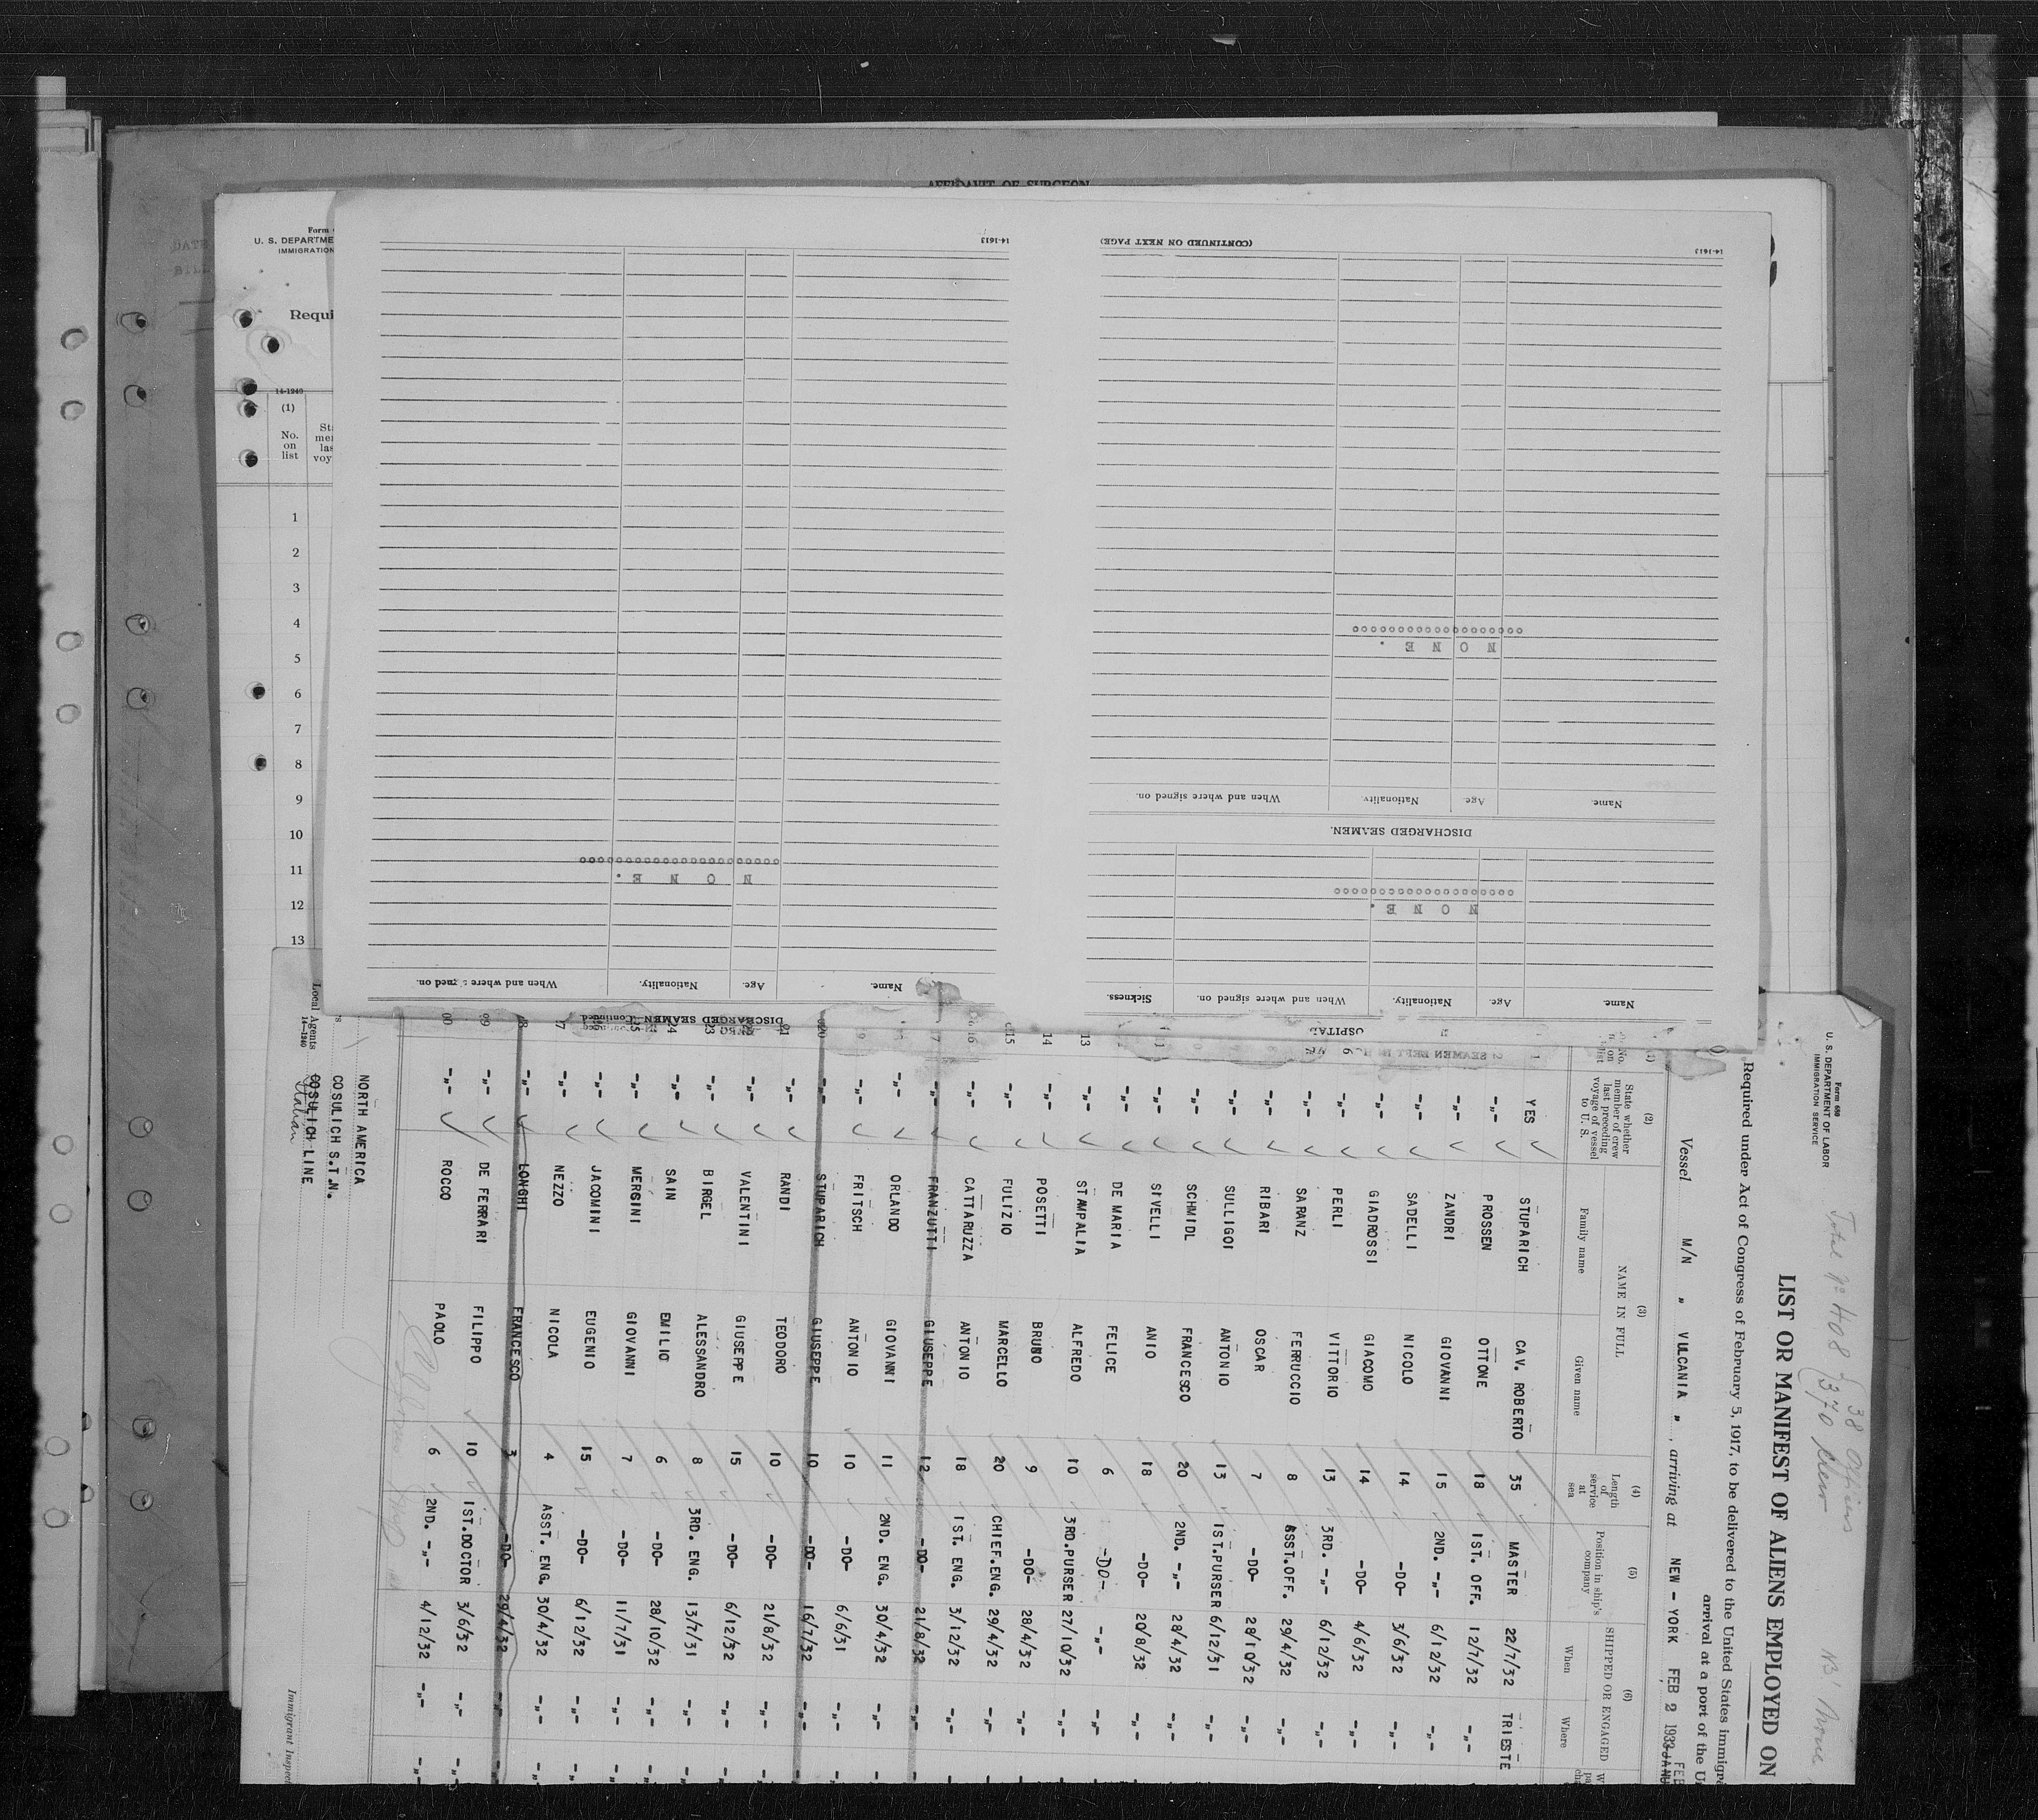 AFFIDAVIT OF SURGEON
Form
U. S. DEPARTME
IMMIGRATION
Requi
14-1240
(1)
No.
on
list
St
mem
las
voy
1
2
3
4
5
6
7
8
9
10
11
12
13
14-1613
(CONTINUED ON NEXT PAGE)
14-1613
HOSPITAL
Name. Age. Nationality. When and where signed on. Sickness.
N O N E.
DISCHARGED SEAMEN.
Name. Age. Nationality. When and where signed on.
N O N E.
DISCHARGED SEAMEN Continued
Name. Age. Nationality. When and where signed on.
N O N E.
Form 680
U. S. DEPARTMENT OF LABOR
IMMIGRATION SERVICE
Total No 408 38 Officers
370 Crew
LIST OR MANIFEST OF ALIENS EMPLOYED ON
Required under Act of Congress of February 5, 1917, to be delivered to the United States immigra
arrival at a port of the U
Vessel M/N " VULCANIA ", arriving at NEW - YORK FEB 2 1933
(1) (2) (3) (4) (5) (6)
No. on list
State whether member of crew last preceding voyage of vessel to U. S.
NAME IN FULL
Family name Given name
Length of service at sea
Position in ship's company
SHIPPED OR ENGAGED
When Where
YES STUPARICH CAV. ROBERTO 35 MASTER 22/7/32 TRIESTE
-"- PROSSEN OTTONE 18 1ST. OFF. 12/7/32 -"-
-"- ZANDRI GIOVANNI 15 2ND. -"- 6/12/32 -"-
-"- SADELLI NICOLO 14 -DO- 3/6/32 -"-
-"- GIADROSSI GIACOMO 14 -DO- 4/6/32 -"-
-"- PERLI VITTORIO 13 3RD. -"- 6/12/32 -"-
-"- SARANZ FERRUCCIO 8 ASST.OFF. 29/4/32 -"-
-"- RIBARI OSCAR 7 -DO- 28/10/32 -"-
-"- SULLIGOI ANTONIO 13 1ST.PURSER 6/12/31 -"-
-"- SCHMIDL FRANCESCO 20 2ND. -"- 28/4/32 -"-
11 -"- SIVELLI ANIO 18 -DO- 20/8/32 -"-
-"- DE MARIA FELICE 6 -DO- -"- -"-
13 -"- STAMPALIA ALFREDO 10 3RD.PURSER 27/10/32 -"-
14 -"- POSETTI BRUNO 9 -DO- 28/4/32 -"-
15 -"- FULIZIO MARCELLO 20 CHIEF.ENG. 29/4/32 -"-
16 -"- CATTARUZZA ANTONIO 18 1ST. ENG. 3/12/32 -"-
17 -"- FRANZUTTI GIUSEPPE 12 -DO- 21/8/32 -"-
-"- ORLANDO GIOVANNI 11 2ND. ENG. 30/4/32 -"-
-"- FRITSCH ANTONIO 10 -DO- 6/6/31 -"-
20 -"- STUPARICH GIUSEPPE 10 -DO- 16/7/32 -"-
21 -"- RANDI TEODORO 10 -DO- 21/8/32 -"-
-"- VALENTINI GIUSEPPE 15 -DO- 6/12/32 -"-
23 -"- BIRGEL ALESSANDRO 8 3RD. ENG. 13/7/31 -"-
24 -"- SAIN EMILIO 6 -DO- 28/10/32 -"-
25 -"- MERSINI GIOVANNI 7 -DO- 11/7/31 -"-
26 -"- JACOMINI EUGENIO 15 -DO- 6/12/32 -"-
-"- NEZZO NICOLA 4 ASST. ENG. 30/4/32 -"-
-"- LONGHI FRANCESCO 3 -DO- 29/4/32 -"-
-"- DE FERRARI FILIPPO 10 1ST.DOCTOR 3/6/32 -"-
-"- ROCCO PAOLO 6 2ND. -"- 4/12/32 -"-
NORTH AMERICA
COSULICH S.T.N.
COSULICH LINE
Italian
Local Agents
14-1240
Immigrant Inspect